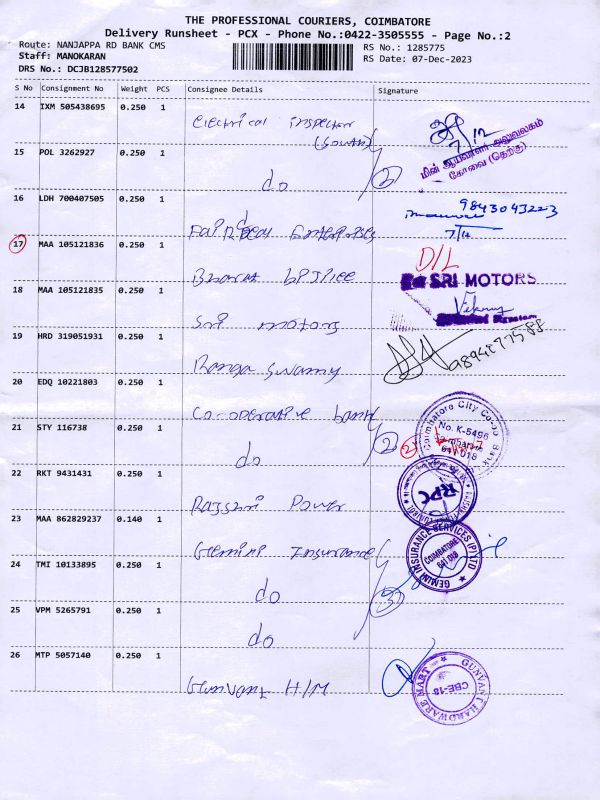 THE PROFESSIONAL COURIERS, COIMBATORE
Delivery Runsheet - PCX - Phone No.:0422-3505555 - Page No.:2
Route: NANJAPPA RD BANK CMS
RS No.: 1285775
Staff: MANOKARAN
RS Date: 07-Dec-2023
DRS No.: DCJB128577502
S No Consignment No Weight PCS Consignee Details Signature
14 IXM 505438695 0.250 1
Electrical inspector
(South)
7/12
மின் ஆய்வாளர் அலுவலகம்
கோவை (தெற்கு)
15 POL 3262927 0.250 1
do
2
16 LDH 700407505 0.250 1
9843043223
7/12
Enterprises
17 MAA 105121836 0.250 1
D/L
Bharat
SRI MOTORS
18 MAA 105121835 0.250 1
Sri motors
19 HRD 319051931 0.250 1
Ranga Swamy
20 EDQ 10221803 0.250 1
Co-operative bank
Coimbatore City Co-op Bank
No. K-5496
Coimbatore
641 018
21 STY 116738 0.250 1
do
2
22 RKT 9431431 0.250 1
Rajshri Power
RPC
23 MAA 862829237 0.140 1
Gemini Insurance
GEMINI INSURANCE SERVICES (P) LTD
COIMBATORE
641 018
24 TMI 10133895 0.250 1
do
3
25 VPM 5265791 0.250 1
do
26 MTP 5057140 0.250 1
H/M
GUNVANT HARDWARE MART
CBE-18